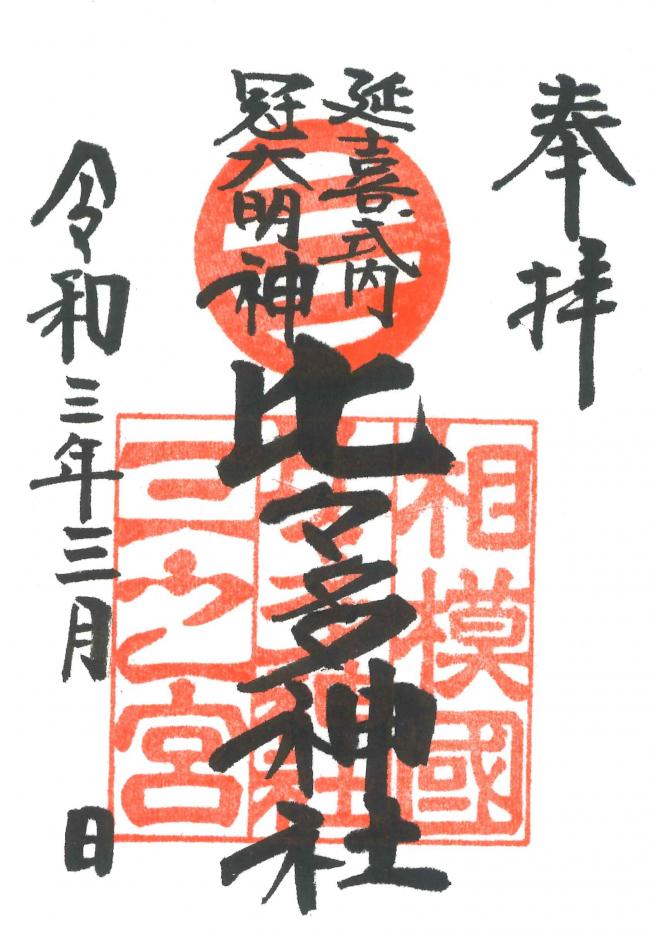 奉拝
延喜式内
冠大明神
比々多神社
令和三年三月 日
相模國
三之宮